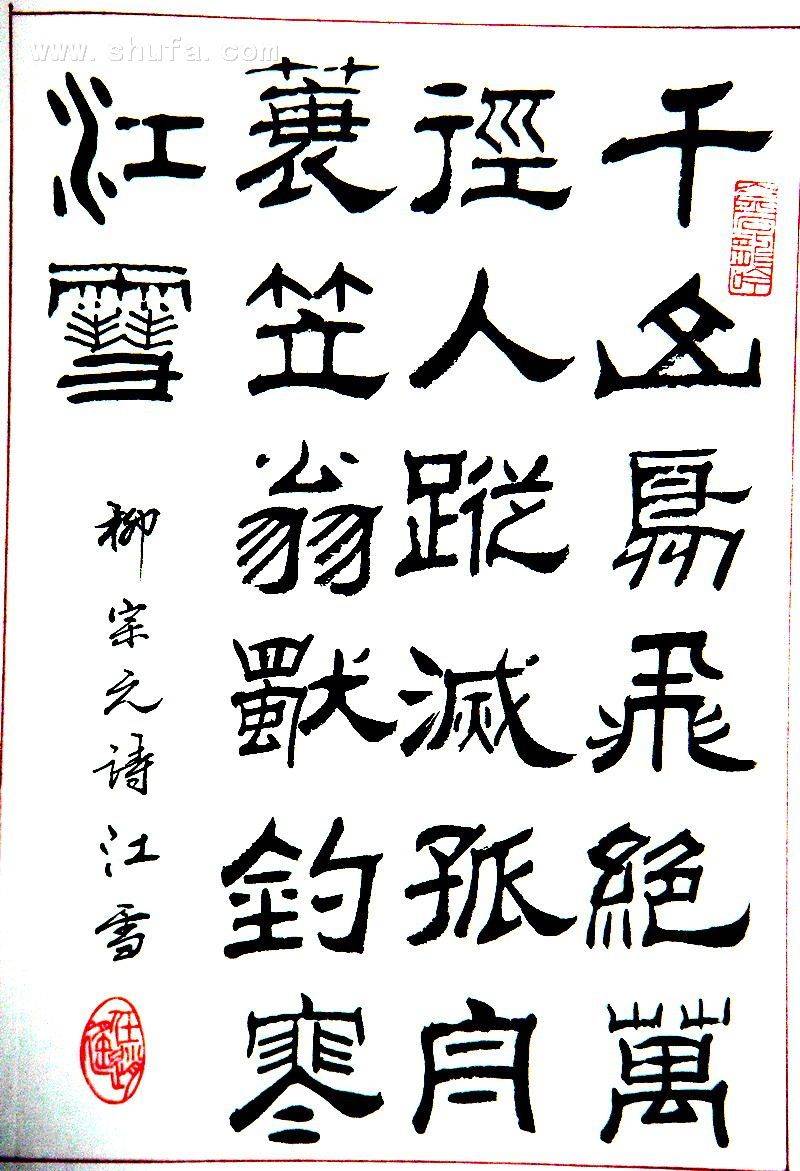 千山鳥飛絶萬
徑人蹤滅孤舟
蓑笠翁獨釣寒
江雪
柳宗元詩江雪
www.shufa.com